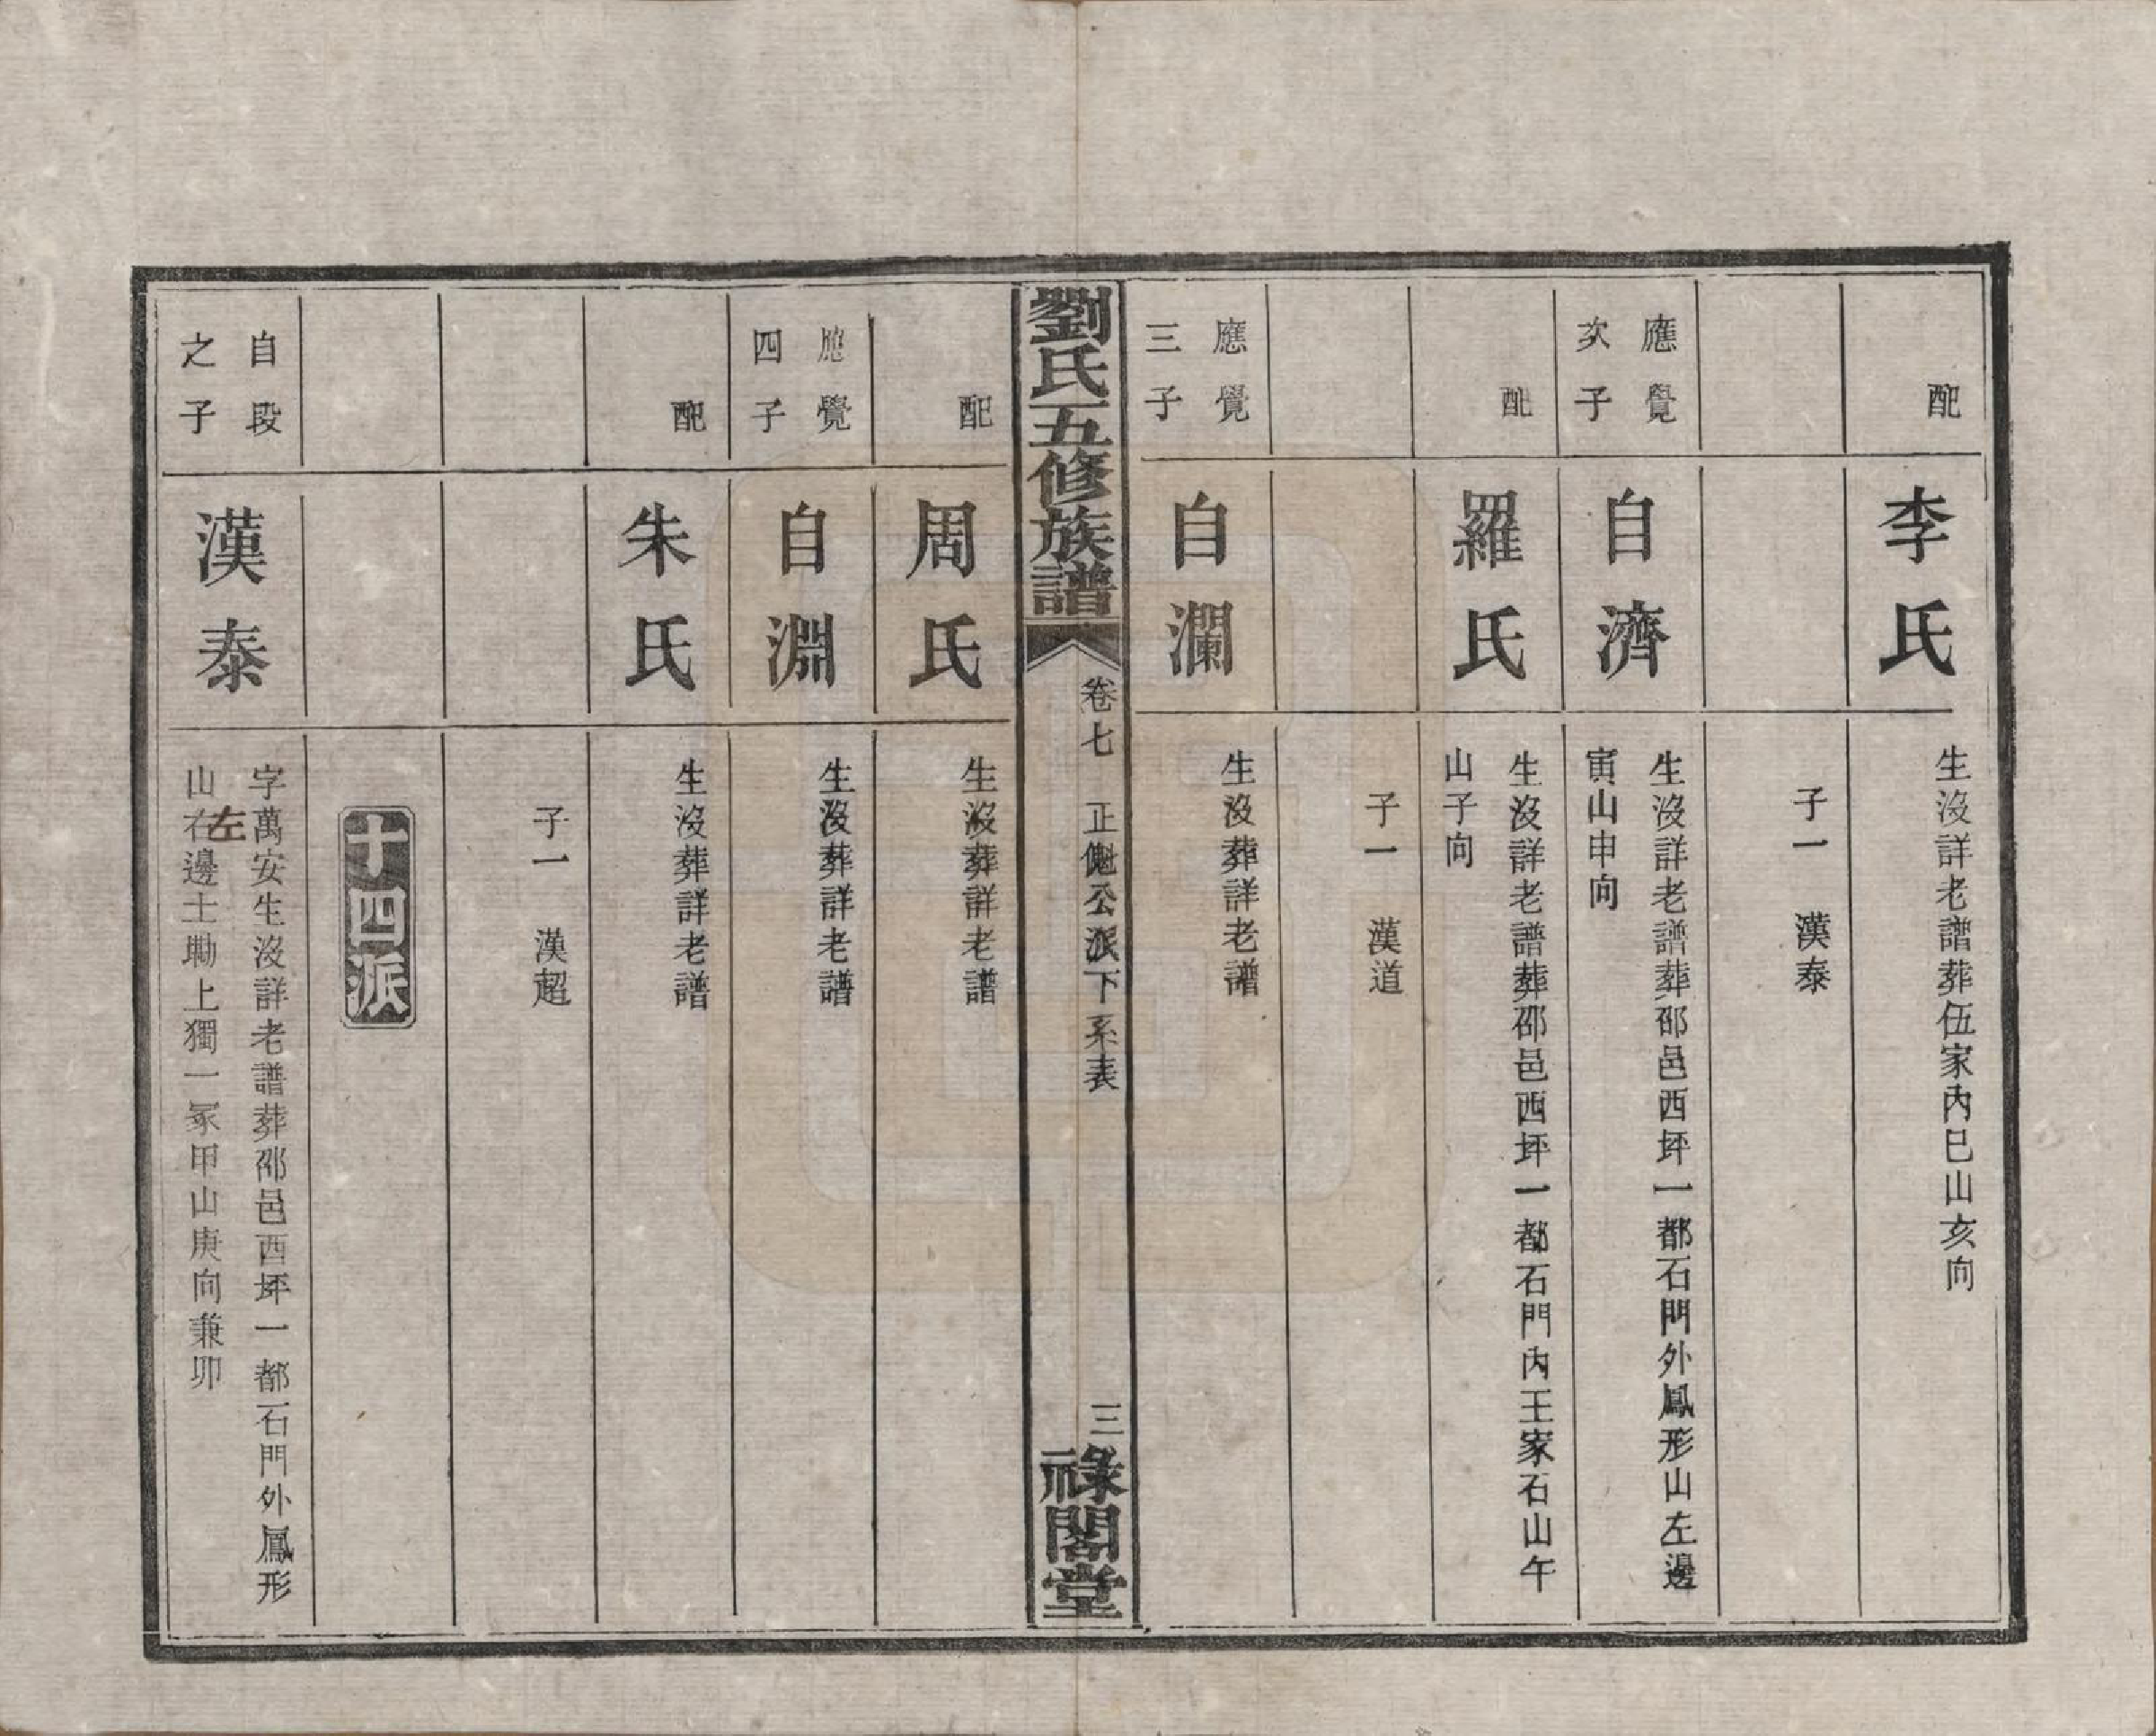 配
李氏
生沒詳老譜葬伍家內巳山亥向
子一 漢泰
應覺
次子
自濟
生沒詳老譜葬邵邑西坪一都石門外鳳形山左邊
寅山申向
配
羅氏
生沒詳老譜葬邵邑西坪一都石門內王家石山午
山子向
子一 漢道
應覺
三子
自瀾
生沒葬詳老譜
劉氏五修族譜
卷七 正魁公派下系表
三
祿閣堂
配
周氏
生沒葬詳老譜
應覺
四子
自淵
生沒葬詳老譜
配
朱氏
生沒葬詳老譜
子一 漢超
十四派
自段
之子
漢泰
字萬安生沒詳老譜葬邵邑西坪一都石門外鳳形
山右邊土勘上獨一冢甲山庚向兼卯
左